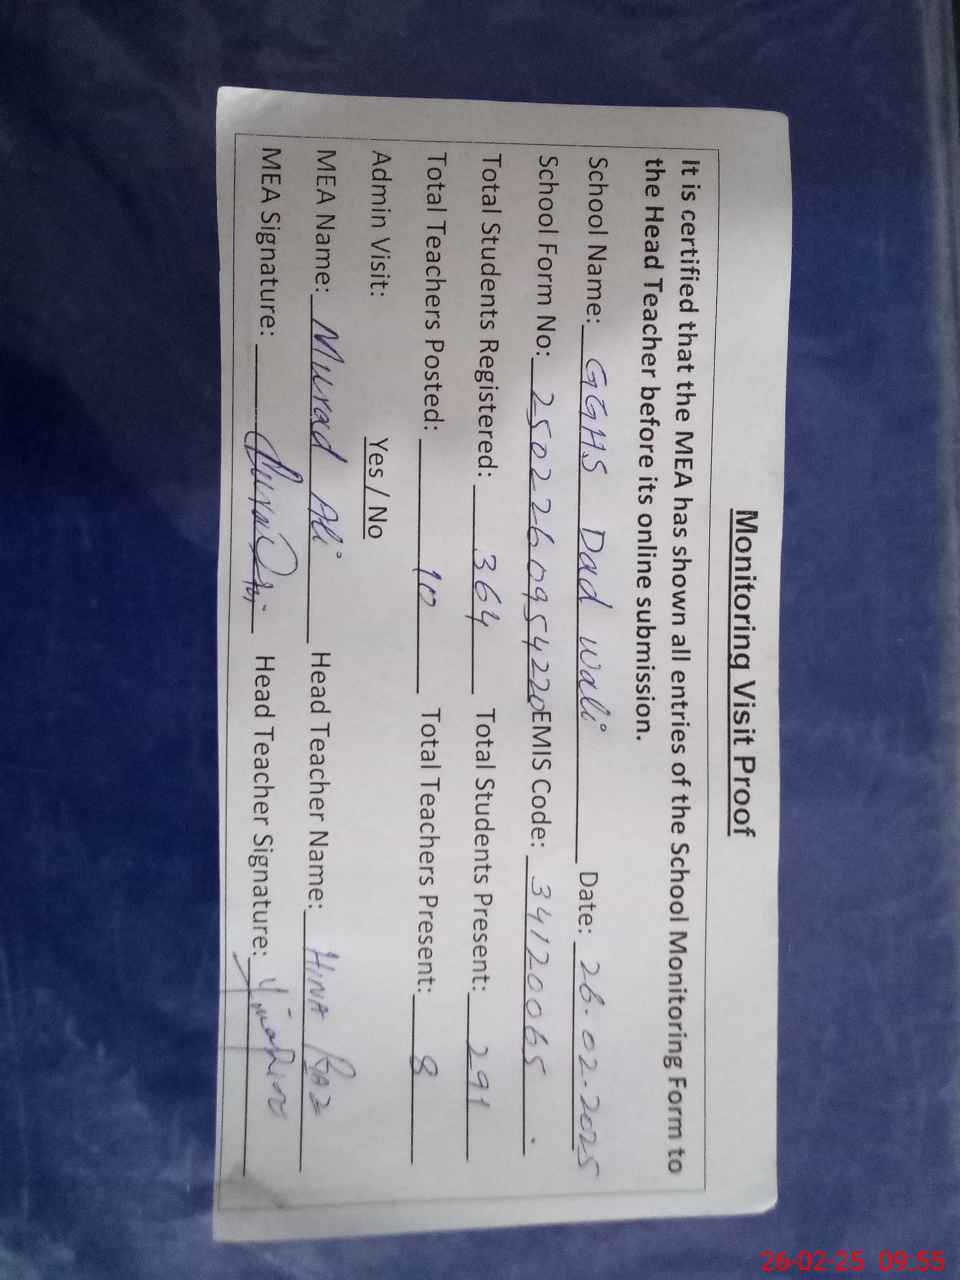 Monitoring Visit Proof
It is certified that the MEA has shown all entries of the School Monitoring Form to
the Head Teacher before its online submission.
School Name: GGHS Dad Wali Date: 26.02.2025
School Form No: 2502260954220 EMIS Code: 34120065
Total Students Registered: 364 Total Students Present: 291
Total Teachers Posted: 10 Total Teachers Present: 8
Admin Visit: Yes / No
MEA Name: Murad Ali Head Teacher Name: HINA
MEA Signature: Head Teacher Signature:
26-02-25 09:55